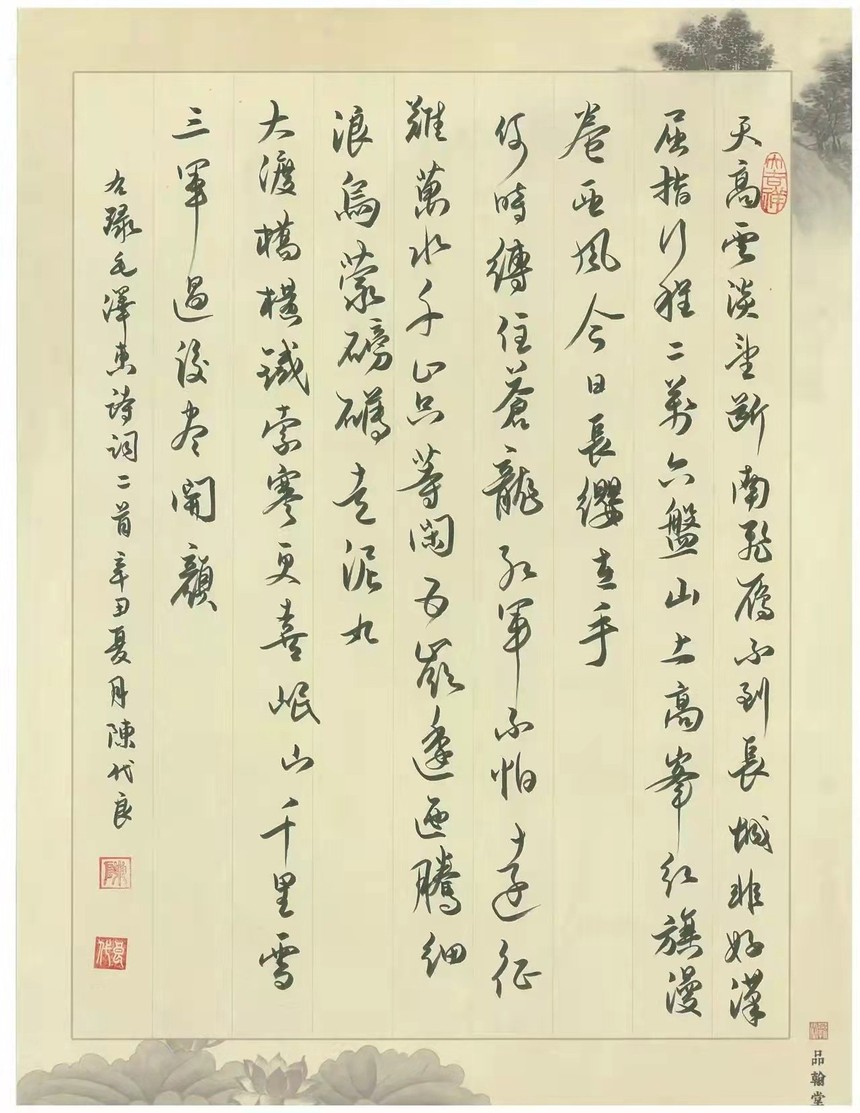 天高雲淡望斷南飛雁不到長城非好漢
屈指行程二萬六盤山上高峯紅旗漫
卷西風今日長纓在手
何時縛住蒼龍紅軍不怕遠征
難萬水千山只等閑五嶺逶迤騰細
浪烏蒙磅礴走泥丸
大渡橋橫鐵索寒更喜岷山千里雪
三軍過後尽開顏
右録毛澤東詩詞二首辛丑夏月陳代良
陳
代良
品翰堂